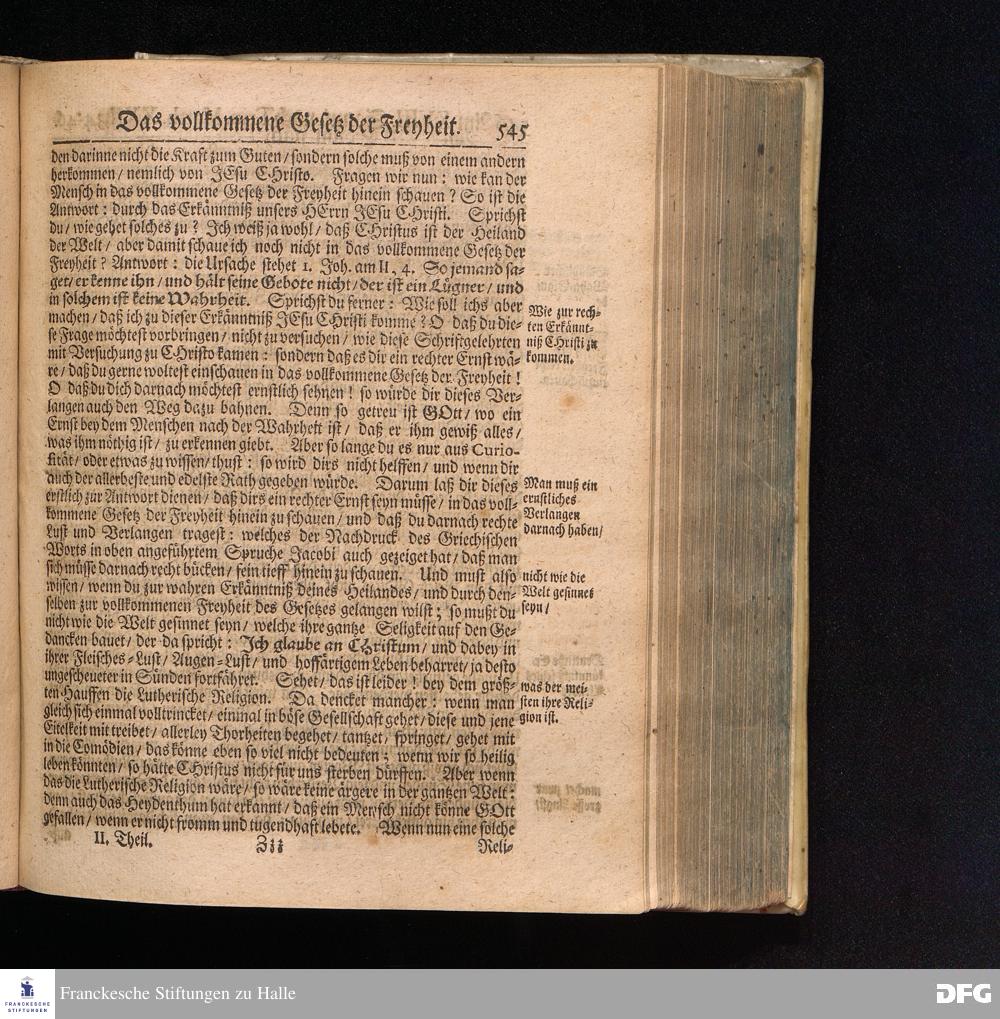 Das vollkommene Gesetz der Freyheit. 545
den darinne nicht die Kraft zum Guten / sondern solche muß von einem andern
herkommen / nemlich von JEsu CHristo. Fragen wir nun: wie kan der
Mensch in das vollkommene Gesetz der Freyheit hinein schauen? So ist die
Antwort: durch das Erkänntniß unsers HErrn JEsu CHristi. Sprichst
du / wie gehet solches zu? Ich weiß ja wohl / daß CHristus ist der Heiland
der Welt / aber damit schaue ich noch nicht in das vollkommene Gesetz der
Freyheit? Antwort: die Ursache stehet 1. Joh. am II, 4. So jemand sa-
get / er kenne ihn / und hält seine Gebote nicht / der ist ein Lügner / und
in solchem ist keine Wahrheit. Sprichst du ferner: Wie soll ichs aber
machen / daß ich zu dieser Erkänntniß JEsu CHristi komme? O daß du die-
se Frage möchtest vorbringen / nicht zu versuchen / wie diese Schriftgelehrten
mit Versuchung zu CHristo kamen: sondern daß es dir ein rechter Ernst wä-
re / daß du gerne woltest einschauen in das vollkommene Gesetz der Freyheit!
O daß du dich darnach möchtest ernstlich sehnen! so würde dir dieses Ver-
langen auch den Weg dazu bahnen. Denn so getreu ist GOtt / wo ein
Ernst bey dem Menschen nach der Wahrheit ist / daß er ihm gewiß alles /
was ihm nöthig ist / zu erkennen giebt. Aber so lange du es nur aus Curio-
sität / oder etwas zu wissen / thust: so wird dirs nicht helffen / und wenn dir
auch der allerbeste und edelste Rath gegeben würde. Darum laß dir dieses
erstlich zur Antwort dienen / daß dirs ein rechter Ernst seyn müsse / in das voll-
kommene Gesetz der Freyheit hinein zu schauen / und daß du darnach rechte
Lust und Verlangen tragest: welches der Nachdruck des Griechischen
Worts in oben angeführtem Spruche Jacobi auch gezeiget hat / daß man
sich müsse darnach recht bücken / fein tieff hinein zu schauen. Und must also
wissen / wenn du zur wahren Erkänntniß deines Heilandes / und durch den-
selben zur vollkommenen Freyheit des Gesetzes gelangen wilst; so mußt du
nicht wie die Welt gesinnet seyn / welche ihre gantze Seligkeit auf den Ge-
dancken bauet / der da spricht: Ich glaube an CHristum / und dabey in
ihrer Fleisches-Lust / Augen-Lust / und hoffärtigem Leben beharret / ja desto
ungescheueter in Sünden fortfähret. Sehet / das ist leider! bey dem größ-
ten Hauffen die Lutherische Religion. Da dencket mancher: wenn man
gleich sich einmal volltrincket / einmal in böse Gesellschaft gehet / diese und jene
Eitelkeit mit treibet / allerley Thorheiten begehet / tantzet / springet / gehet mit
in die Comödien / das könne eben so viel nicht bedeuten; wenn wir so heilig
leben könnten / so hätte CHristus nicht für uns sterben dürffen. Aber wenn
das die Lutherische Religion wäre / so wäre keine ärgere in der gantzen Welt:
denn auch das Heydenthum hat erkannt / daß ein Mensch nicht könne GOtt
gefallen / wenn er nicht fromm und tugendhaft lebete. Wenn nun eine solche
II. Theil. Zzz Reli-
Wie zur rech-
ten Erkännt-
niß CHristi zu
kommen.
Man muß ein
ernstliches
Verlangen
darnach haben /
nicht wie die
Welt gesinnet
seyn /
was der mei-
sten ihre Reli-
gion ist.
FRANCKESCHE
STIFTUNGEN
Franckesche Stiftungen zu Halle
DFG